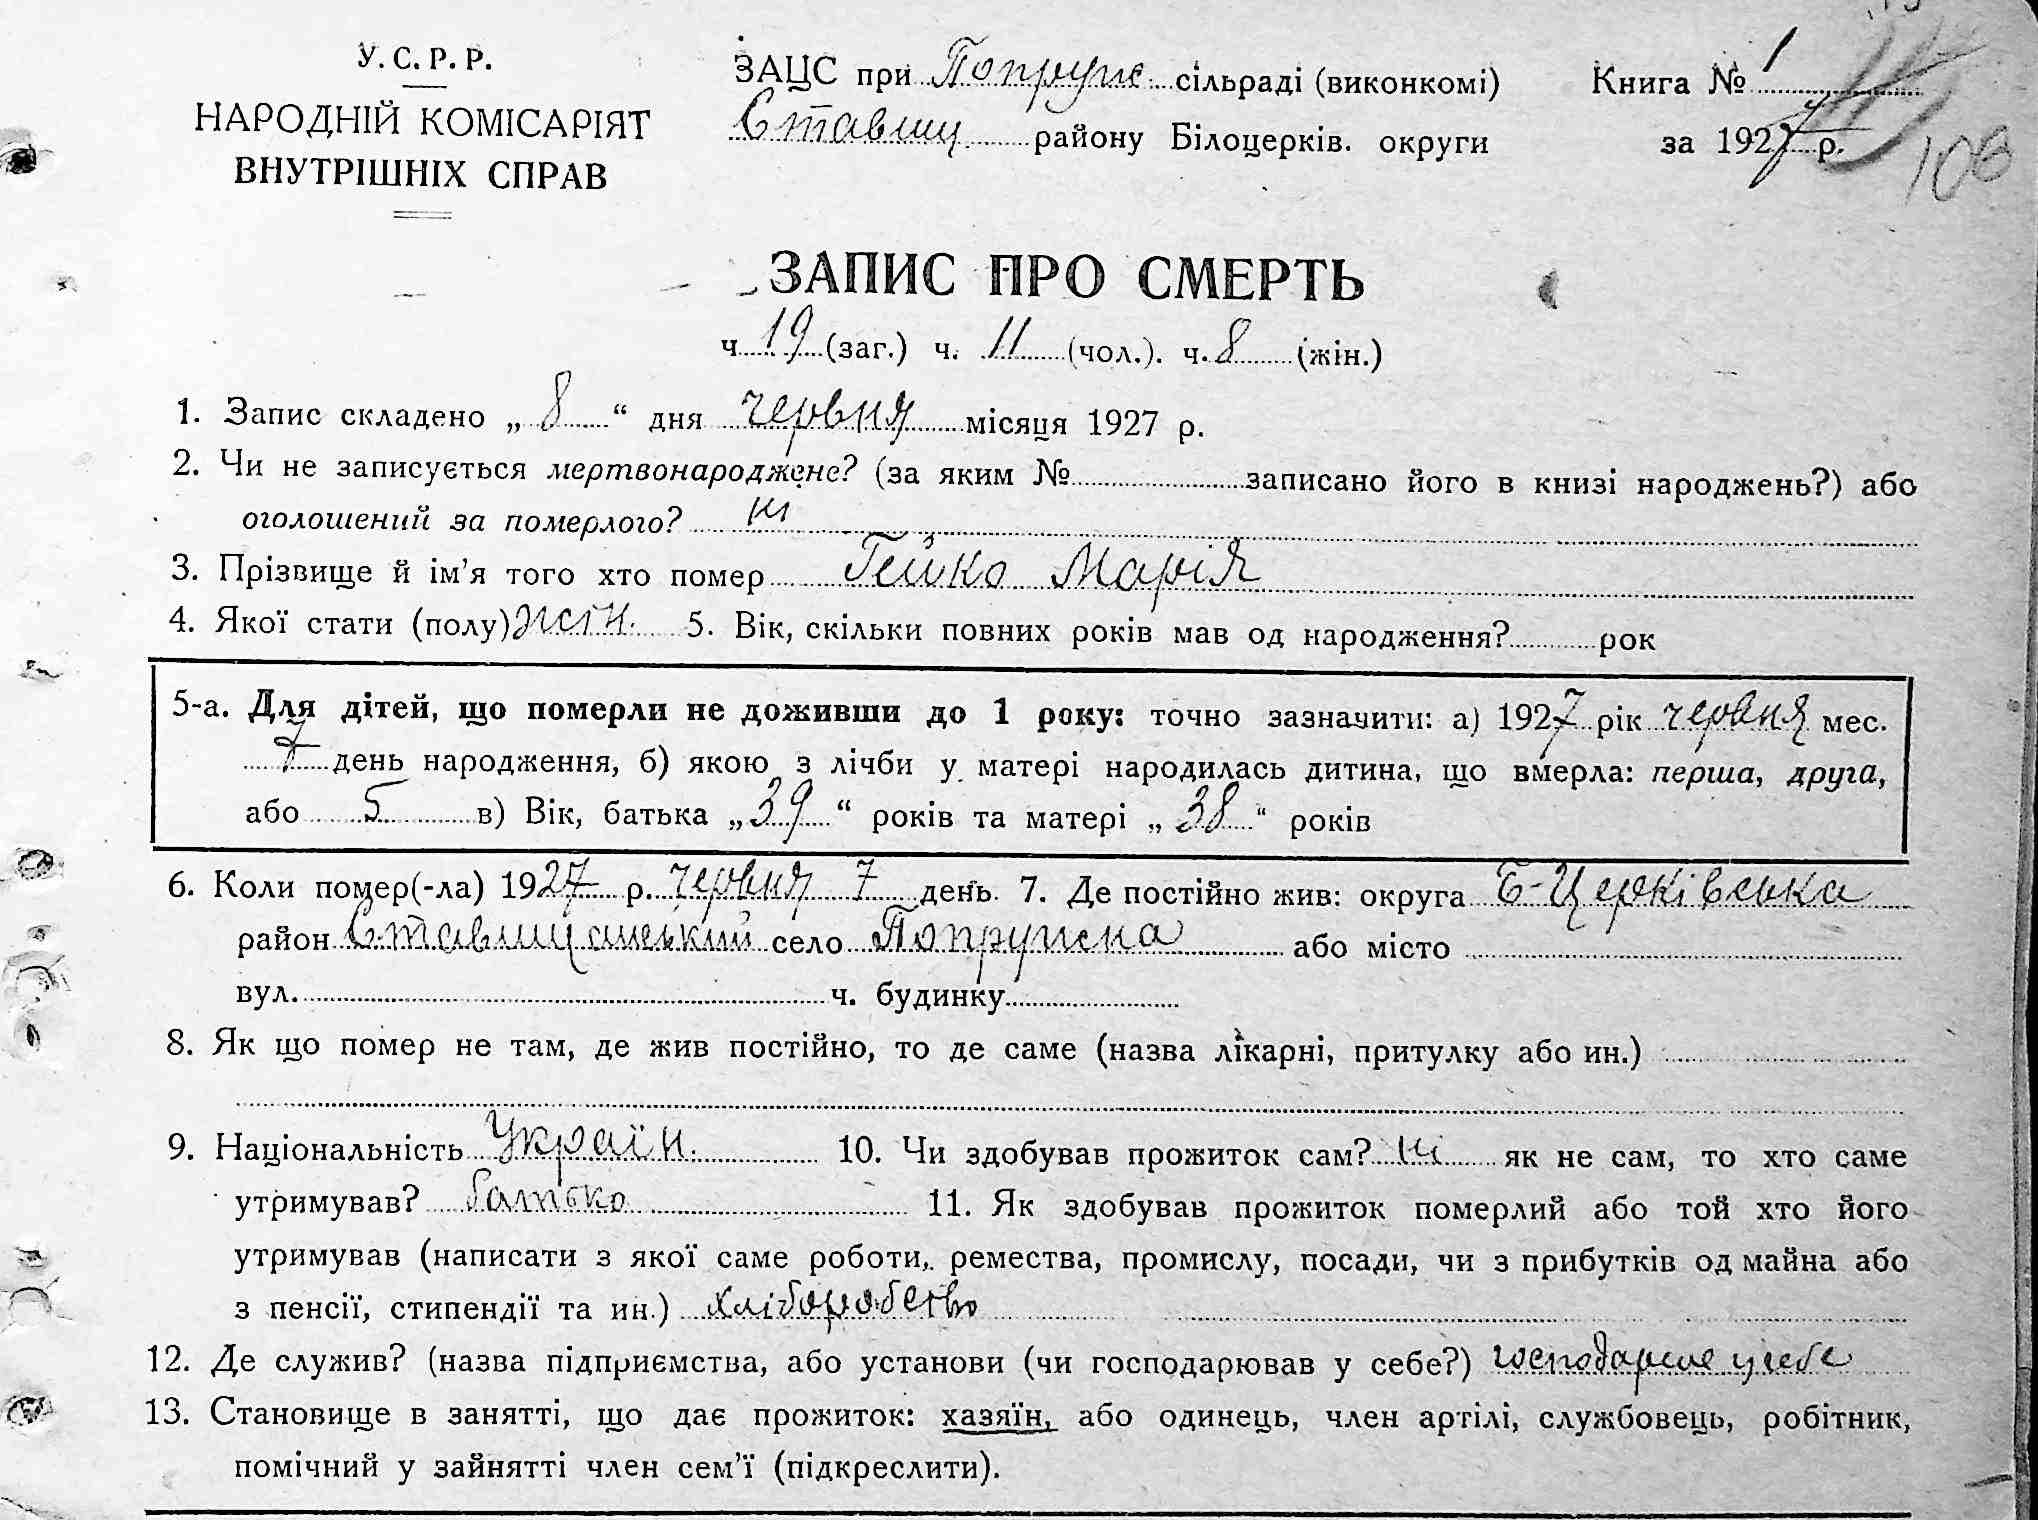 У.С.Р.Р.
НАРОДНІЙ КОМІСАРІЯТ
ВНУТРІШНІХ СПРАВ
ЗАЦС при Попруж. сільраді (виконкомі)
Ставищ район​у Білоцерків. округи
Книга № 1
за 1927 р.
108
ЗАПИС ПРО СМЕРТЬ
ч 19 (заг.) ч. 11 (чол.). ч. 8 (жін.)
1. Запис складено „ 8 “ дня червня місяця 1927 р.
2. Чи не записується мертвонароджене? (за яким № записано його в книзі народжень?) або
оголошений за померлого? ні
3. Прізвище й ім’я того хто помер Гейко Марія
4. Якої стати (полу) жін. 5. Вік, скільки повних років мав од народження? рок
5-а. Для дітей, що померли не доживши до 1 року: точно зазначити: а) 1927 рік червня мес.
7 день народження, б) якою з лічби у матері народилась дитина, що вмерла: перша, друга,
або 5 в) Вік, батька „ 39 “ років та матері „ 38 “ років
6. Коли помер(-ла) 1927 р. червня 7 день. 7. Де постійно жив: округа Б-Церківська
район Ставищанський село Попружна або місто
вул. ч. будинку
8. Як що помер не там, де жив постійно, то де саме (назва лікарні, притулку або ин.)
9. Національність Україн. 10. Чи здобував прожиток сам? ні як не сам, то хто саме
утримував? батько 11. Як здобував прожиток померлий або той хто його
утримував (написати з якої саме роботи, ремества, промислу, посади, чи з прибутків од майна або
з пенсії, стипендії та ин.) хліборобство
12. Де служив? (назва підприємства, або установи (чи господарював у себе?) господарює у себе
13. Становище в занятті, що дає прожиток: хазяїн, або одинець, член артілі, службовець, робітник,
помічний у зайнятті член сем’ї (підкреслити).